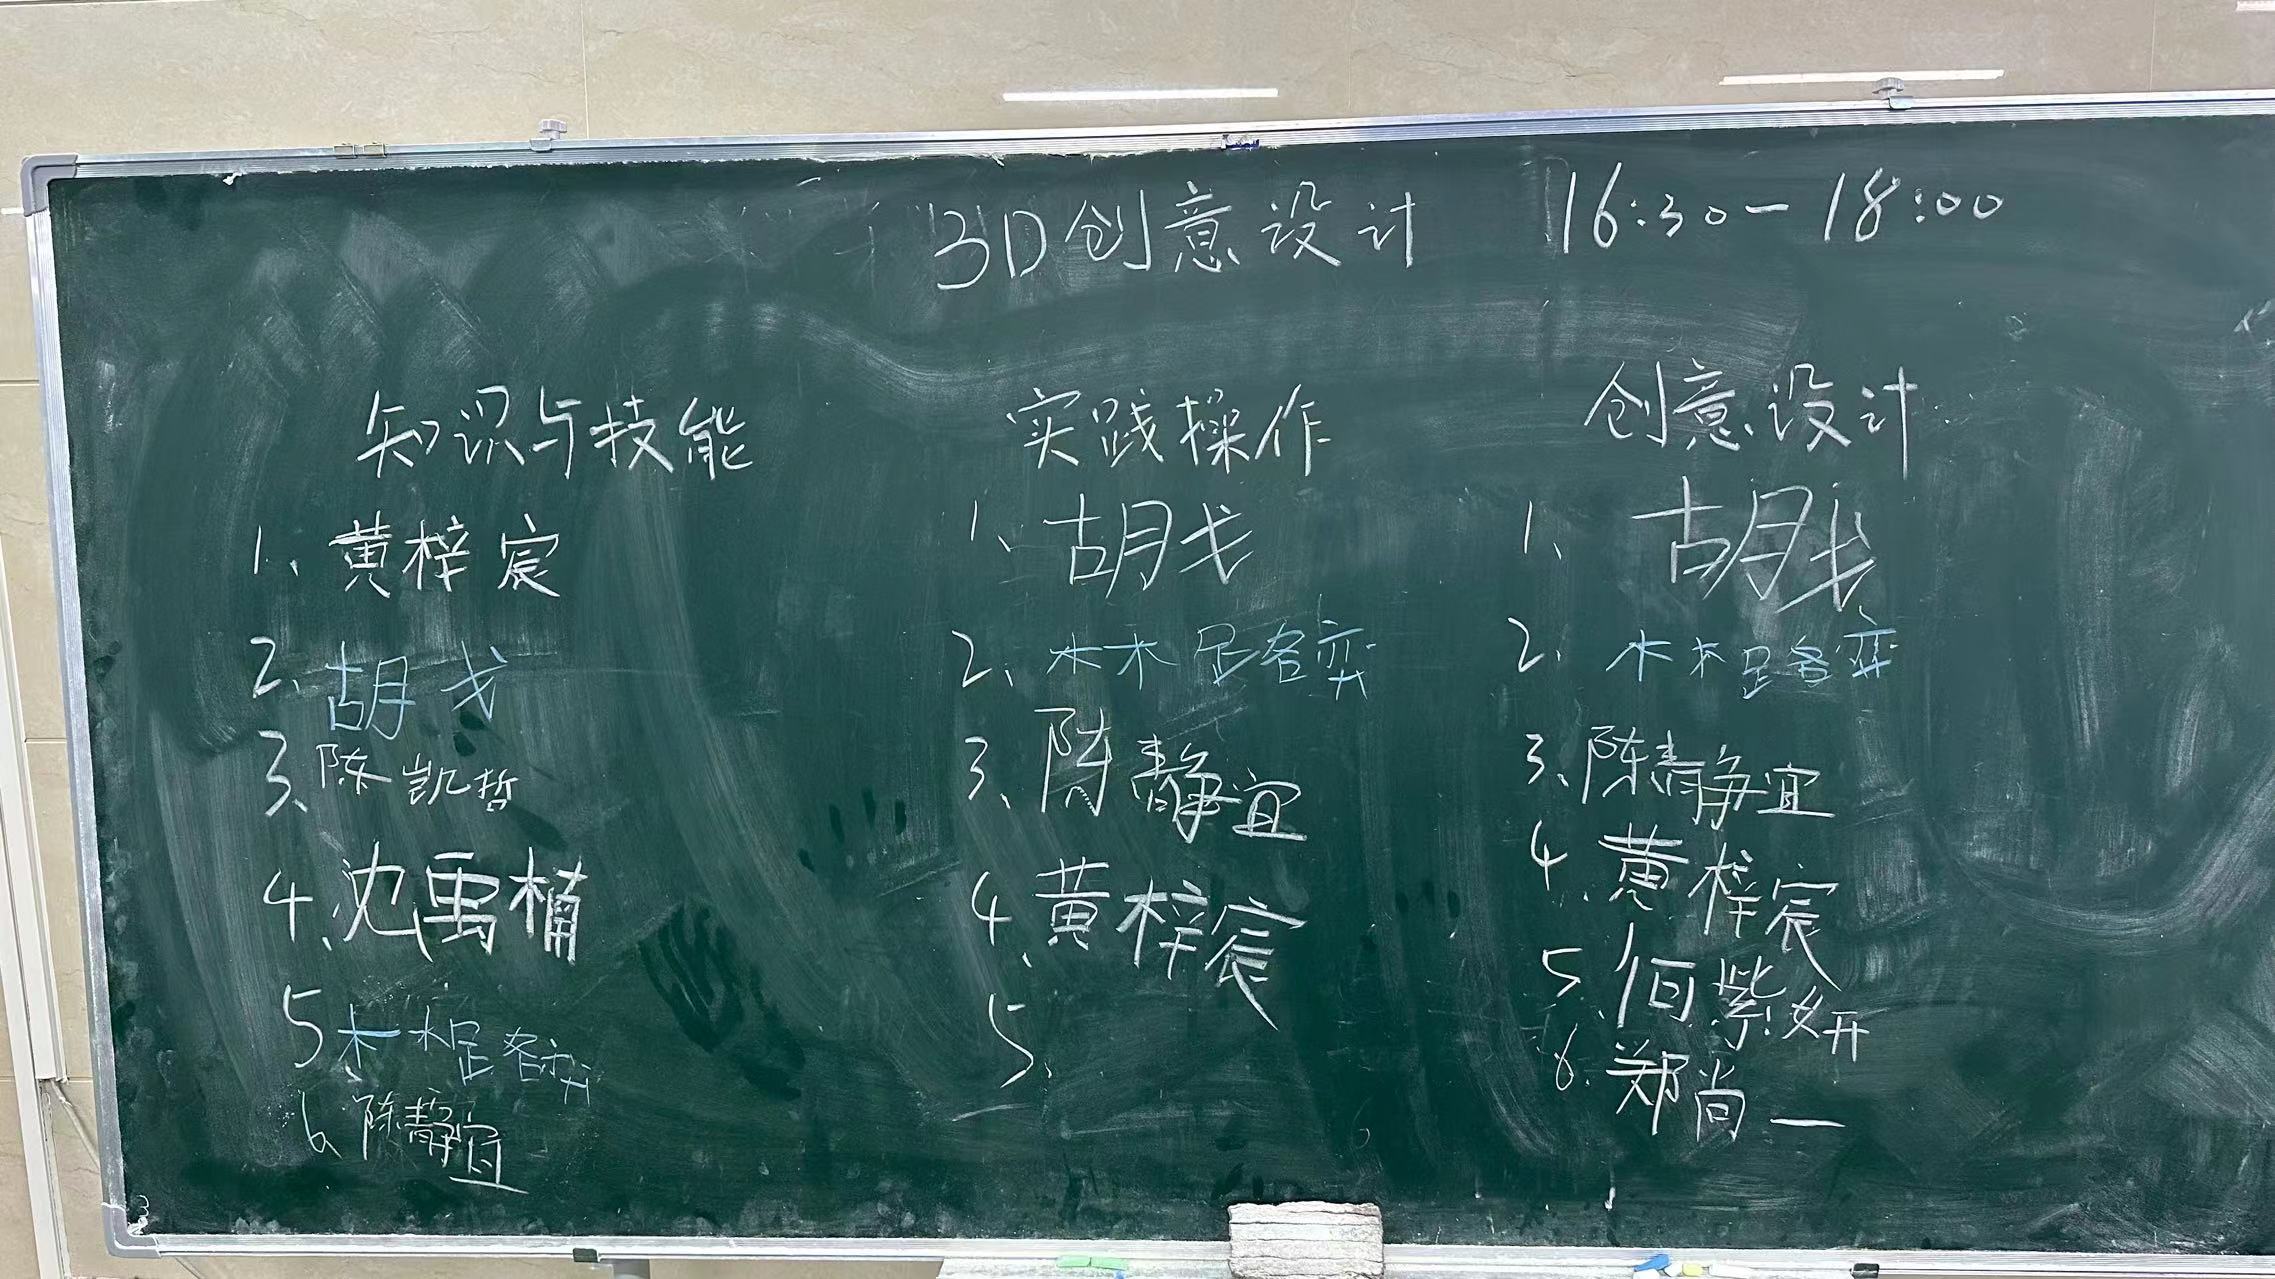 3D创意设计 16:30-18:00
知识与技能
1、黄梓宸
2、胡戈
3、陈凯哲
4、沈禹楠
5 林路弈
6、陈静宜
实践操作
1、胡戈
2、林路弈
3、陈静宜
4、黄梓宸
5、
创意设计
1、胡戈
2、林路弈
3、陈静宜
4、黄梓宸
5、何紫妍
6、郑尚一